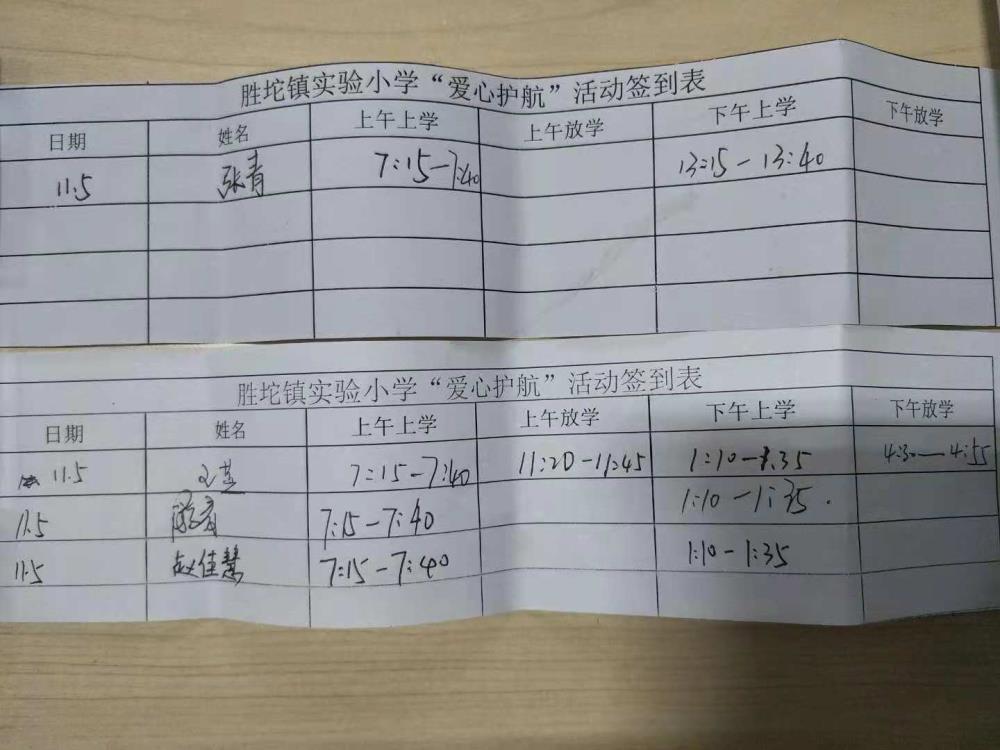 胜坨镇实验小学“爱心护航”活动签到表
日期 姓名 上午上学 上午放学 下午上学 下午放学
11.5 张青 7:15-7:40 13:15-13:40
胜坨镇实验小学“爱心护航”活动签到表
日期 姓名 上午上学 上午放学 下午上学 下午放学
11.5 7:15-7:40 11:20-11:45 1:10-1:35 4:30-4:55
11.5 7:15-7:40 1:10-1:35.
11.5 赵佳慧 7:15-7:40 1:10-1:35